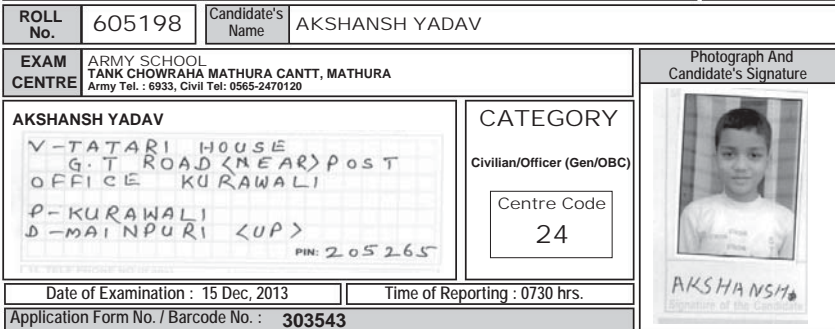 ROLL No. 605198 Candidate's Name AKSHANSH YADAV
EXAM CENTRE ARMY SCHOOL
TANK CHOWRAHA MATHURA CANTT, MATHURA
Army Tel. : 6933, Civil Tel: 0565-2470120
Photograph And
Candidate's Signature
AKSHANSH YADAV
V-TATARI HOUSE
G.T ROAD <NEAR> POST
OFFICE KURAWALI
P-KURAWALI
D-MAINPURI <UP>
PIN: 205265
CATEGORY
Civilian/Officer (Gen/OBC)
Centre Code
24
AKSHANSH
Signature of the Candidate
Date of Examination : 15 Dec, 2013 Time of Reporting : 0730 hrs.
Application Form No. / Barcode No. : 303543